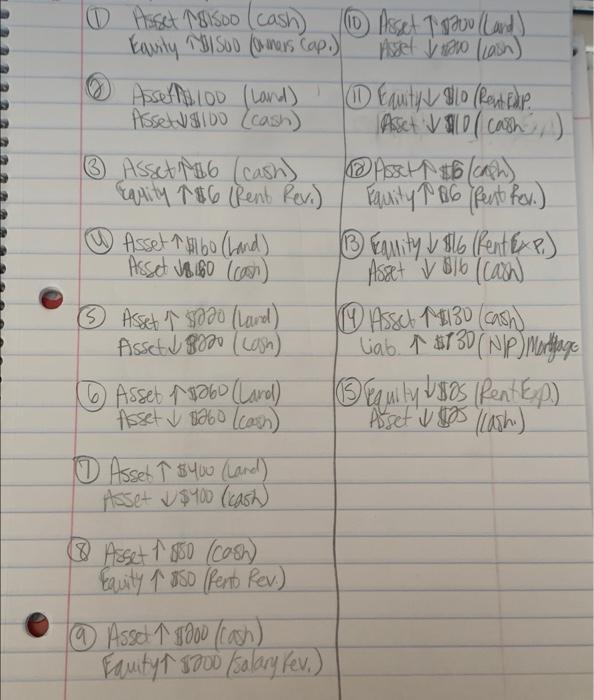 ① Asset ↑ $1500 (cash)
Equity ↑ $1500 (owners Cap.)
② Asset ↑ $100 (Land)
Asset ↓ $100 (cash)
③ Asset ↑ $6 (cash)
Equity ↑ $6 (Rent Rev.)
④ Asset ↑ $160 (Land)
Asset ↓ $160 (cash)
⑤ Asset ↑ $220 (Land)
Asset ↓ $220 (cash)
⑥ Asset ↑ $260 (Land)
Asset ↓ $260 (cash)
⑦ Asset ↑ $400 (Land)
Asset ↓ $400 (cash)
⑧ Asset ↑ $50 (cash)
Equity ↑ $50 (Rent Rev.)
⑨ Asset ↑ $200 (cash)
Equity ↑ $200 (Salary Rev.)
⑩ Asset ↑ $200 (Land)
Asset ↓ $200 (cash)
⑪ Equity ↓ $10 (Rent Exp.
Asset ↓ $10 (cash )
⑫ Asset ↑ $6 (cash)
Equity ↑ $6 (Rent Rev.)
13 Equity ↓ $16 (Rent Exp.)
Asset ↓ $16 (cash)
⑭ Asset ↑ $130 (cash)
Liab. ↑ $130 (N/P) Mortgage
⑮ Equity ↓ $25 (Rent Exp.)
Asset ↓ $25 (cash.)